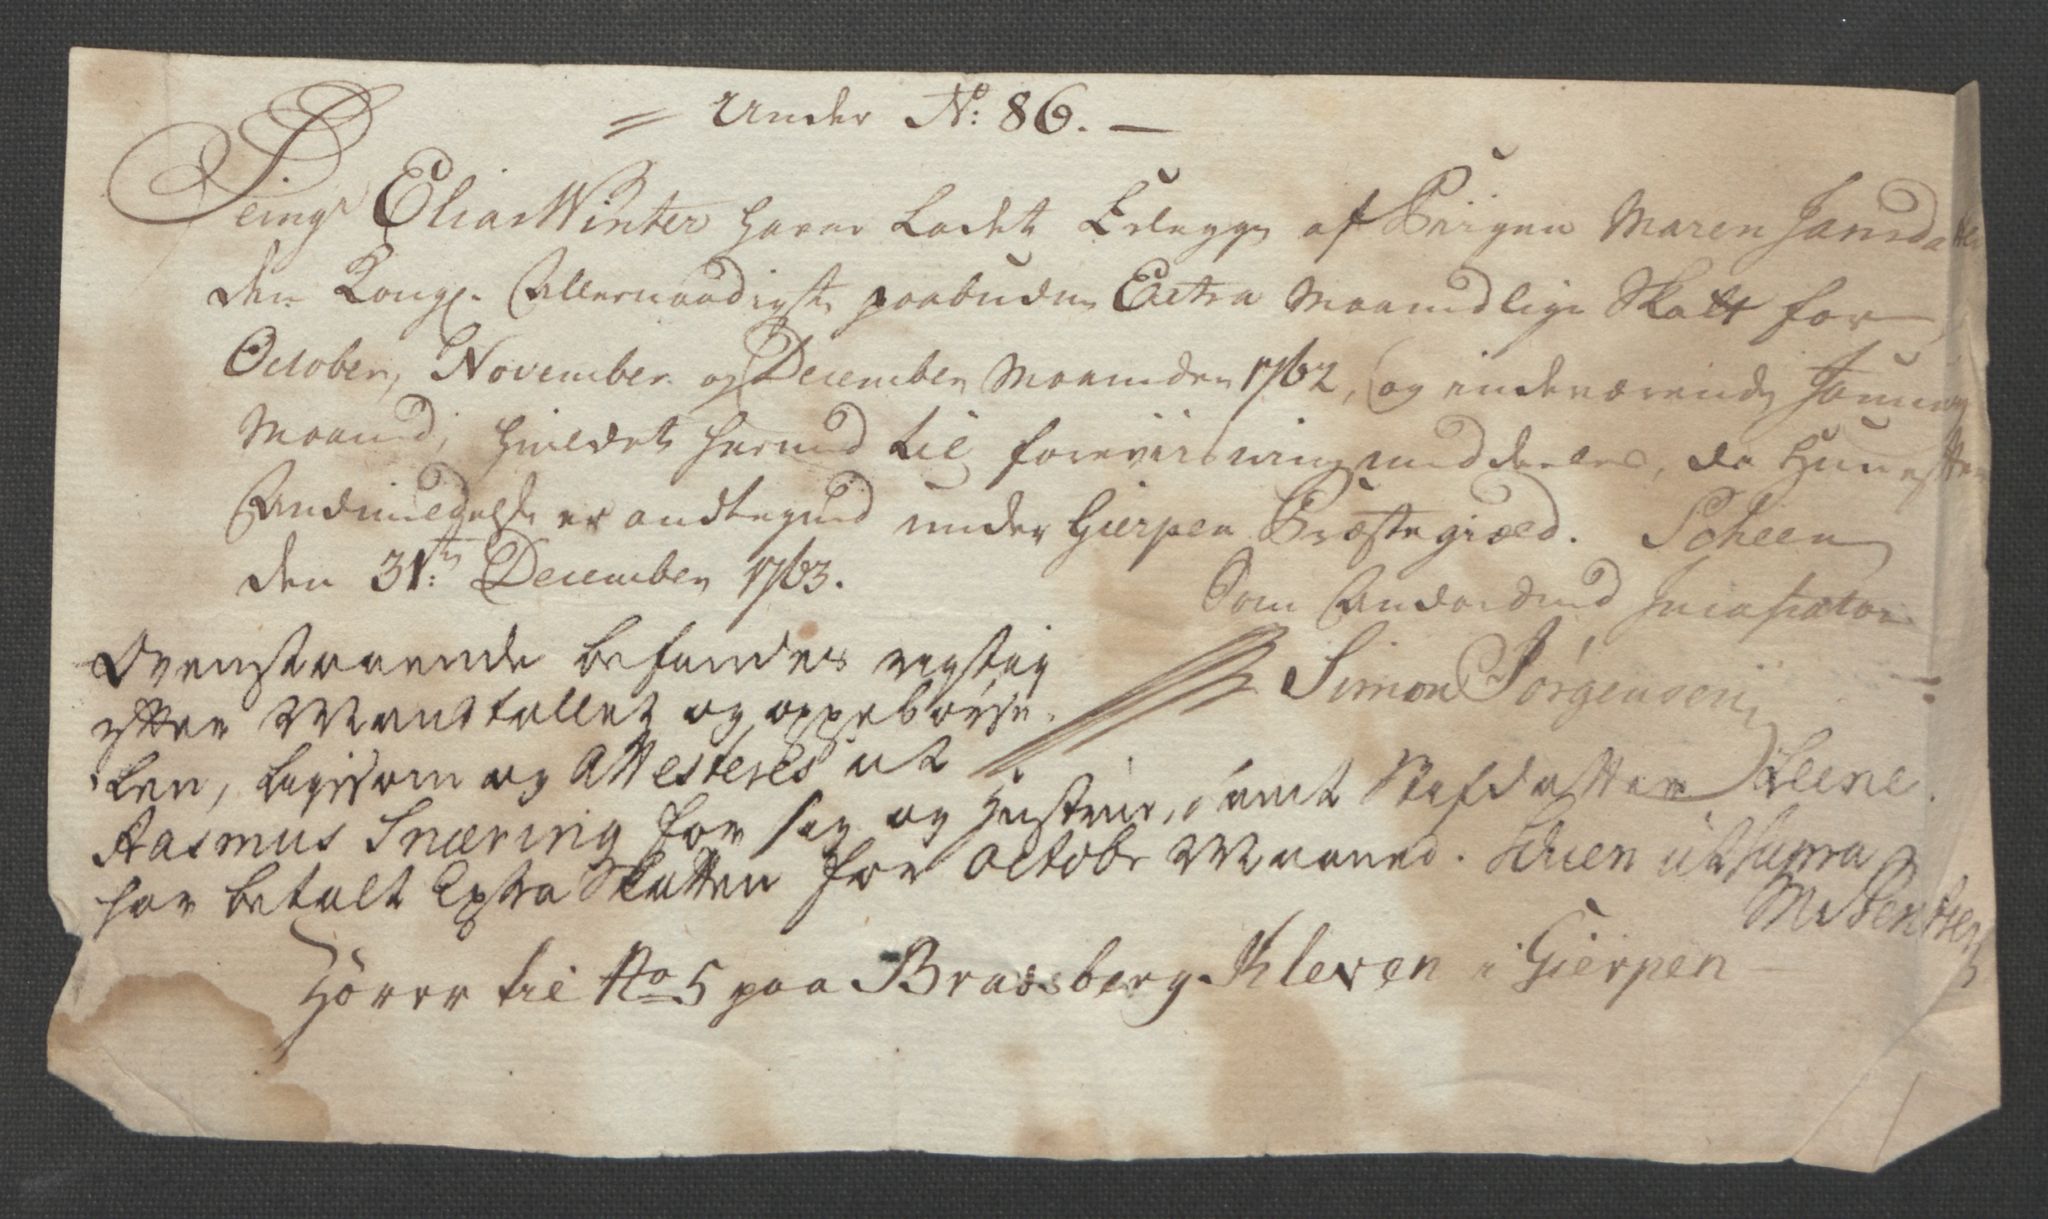 = Under No: 86. —
Seigr Elias Winter haver Ladet Erlegge af Piigen Maren Jansdatter
den Kongl. Allernaadigste paabudne Extra Maanedlige Skatt for
October, November og December Maaneder 1762, og indeværende Januarij
Maaned, hvilket herved til foreviisning meddeeles, da Hun efter
Andmeldelse er andtegned under Gierpen Præstegield. Scheen
den 31te December 1763.
Som Anordned Incassator
Simon Jørgensen
Ovenstaaende befindes rigtig
efter Mandtallet og oppebørse-
len, ligesom og Attesteres at
Rasmus Snæring for sig og Hustrue, samt Stifdatter Leene
har betalt Extra Skatten for Octobr Maaned. Schien ut supra
Hörer til No 5 paa Bratsberg-Kleven i Gierpen